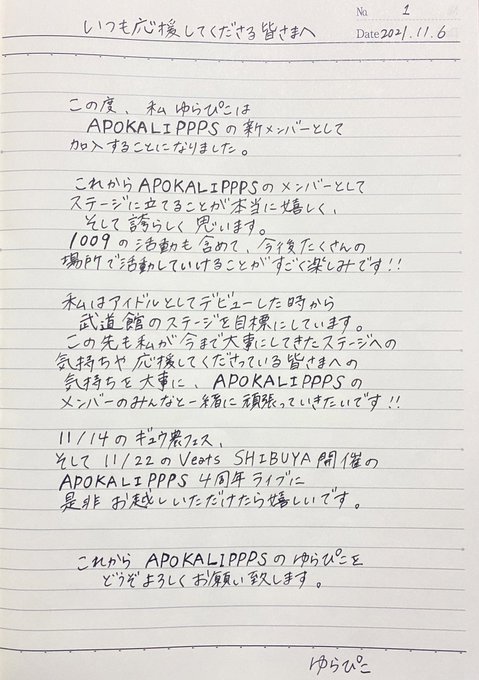 No. 1
いつも応援してくださる皆さまへ
Date 2021.11.6
この度、私 ゆらぴこは
APOKALIPPPSの新メンバーとして
加入することになりました。
これからAPOKALIPPPSのメンバーとして
ステージに立てることが本当に嬉しく、
そして誇らしく思います。
1009の活動も含めて、今後たくさんの
場所で活動していけることがすごく楽しみです!!
私はアイドルとしてデビューした時から
武道館のステージを目標にしています。
この先も私が今まで大事にしてきたステージへの
気持ちや応援してくださっている皆さまへの
気持ちを大事に、APOKALIPPPSの
メンバーのみんなと一緒に頑張っていきたいです!!
11/14のギュウ農フェス、
そして11/22のVeats SHIBUYA開催の
APOKALIPPPS 4周年ライブに
是非お越しいただけたら嬉しいです。
これから APOKALIPPPSのゆらぴこを
どうぞよろしくお願い致します。
ゆらぴこ